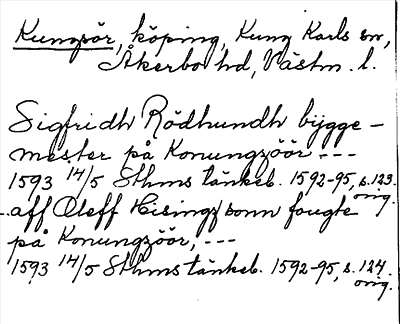 Kungsör, köping, Kung Karls sn,
Åkerbo hd, Västm. l.
Sigfridh Rödhundh bÿgge-
mester på Konungzöör ---
1593 14/5 Sthms tänkeb. 1592-95, s. 123.
orig.
..aff Oleff Hisingzsonn fougte
på Konungzöör, ---
1593 14/5 Sthms tänkeb. 1592-95, s. 124
orig.